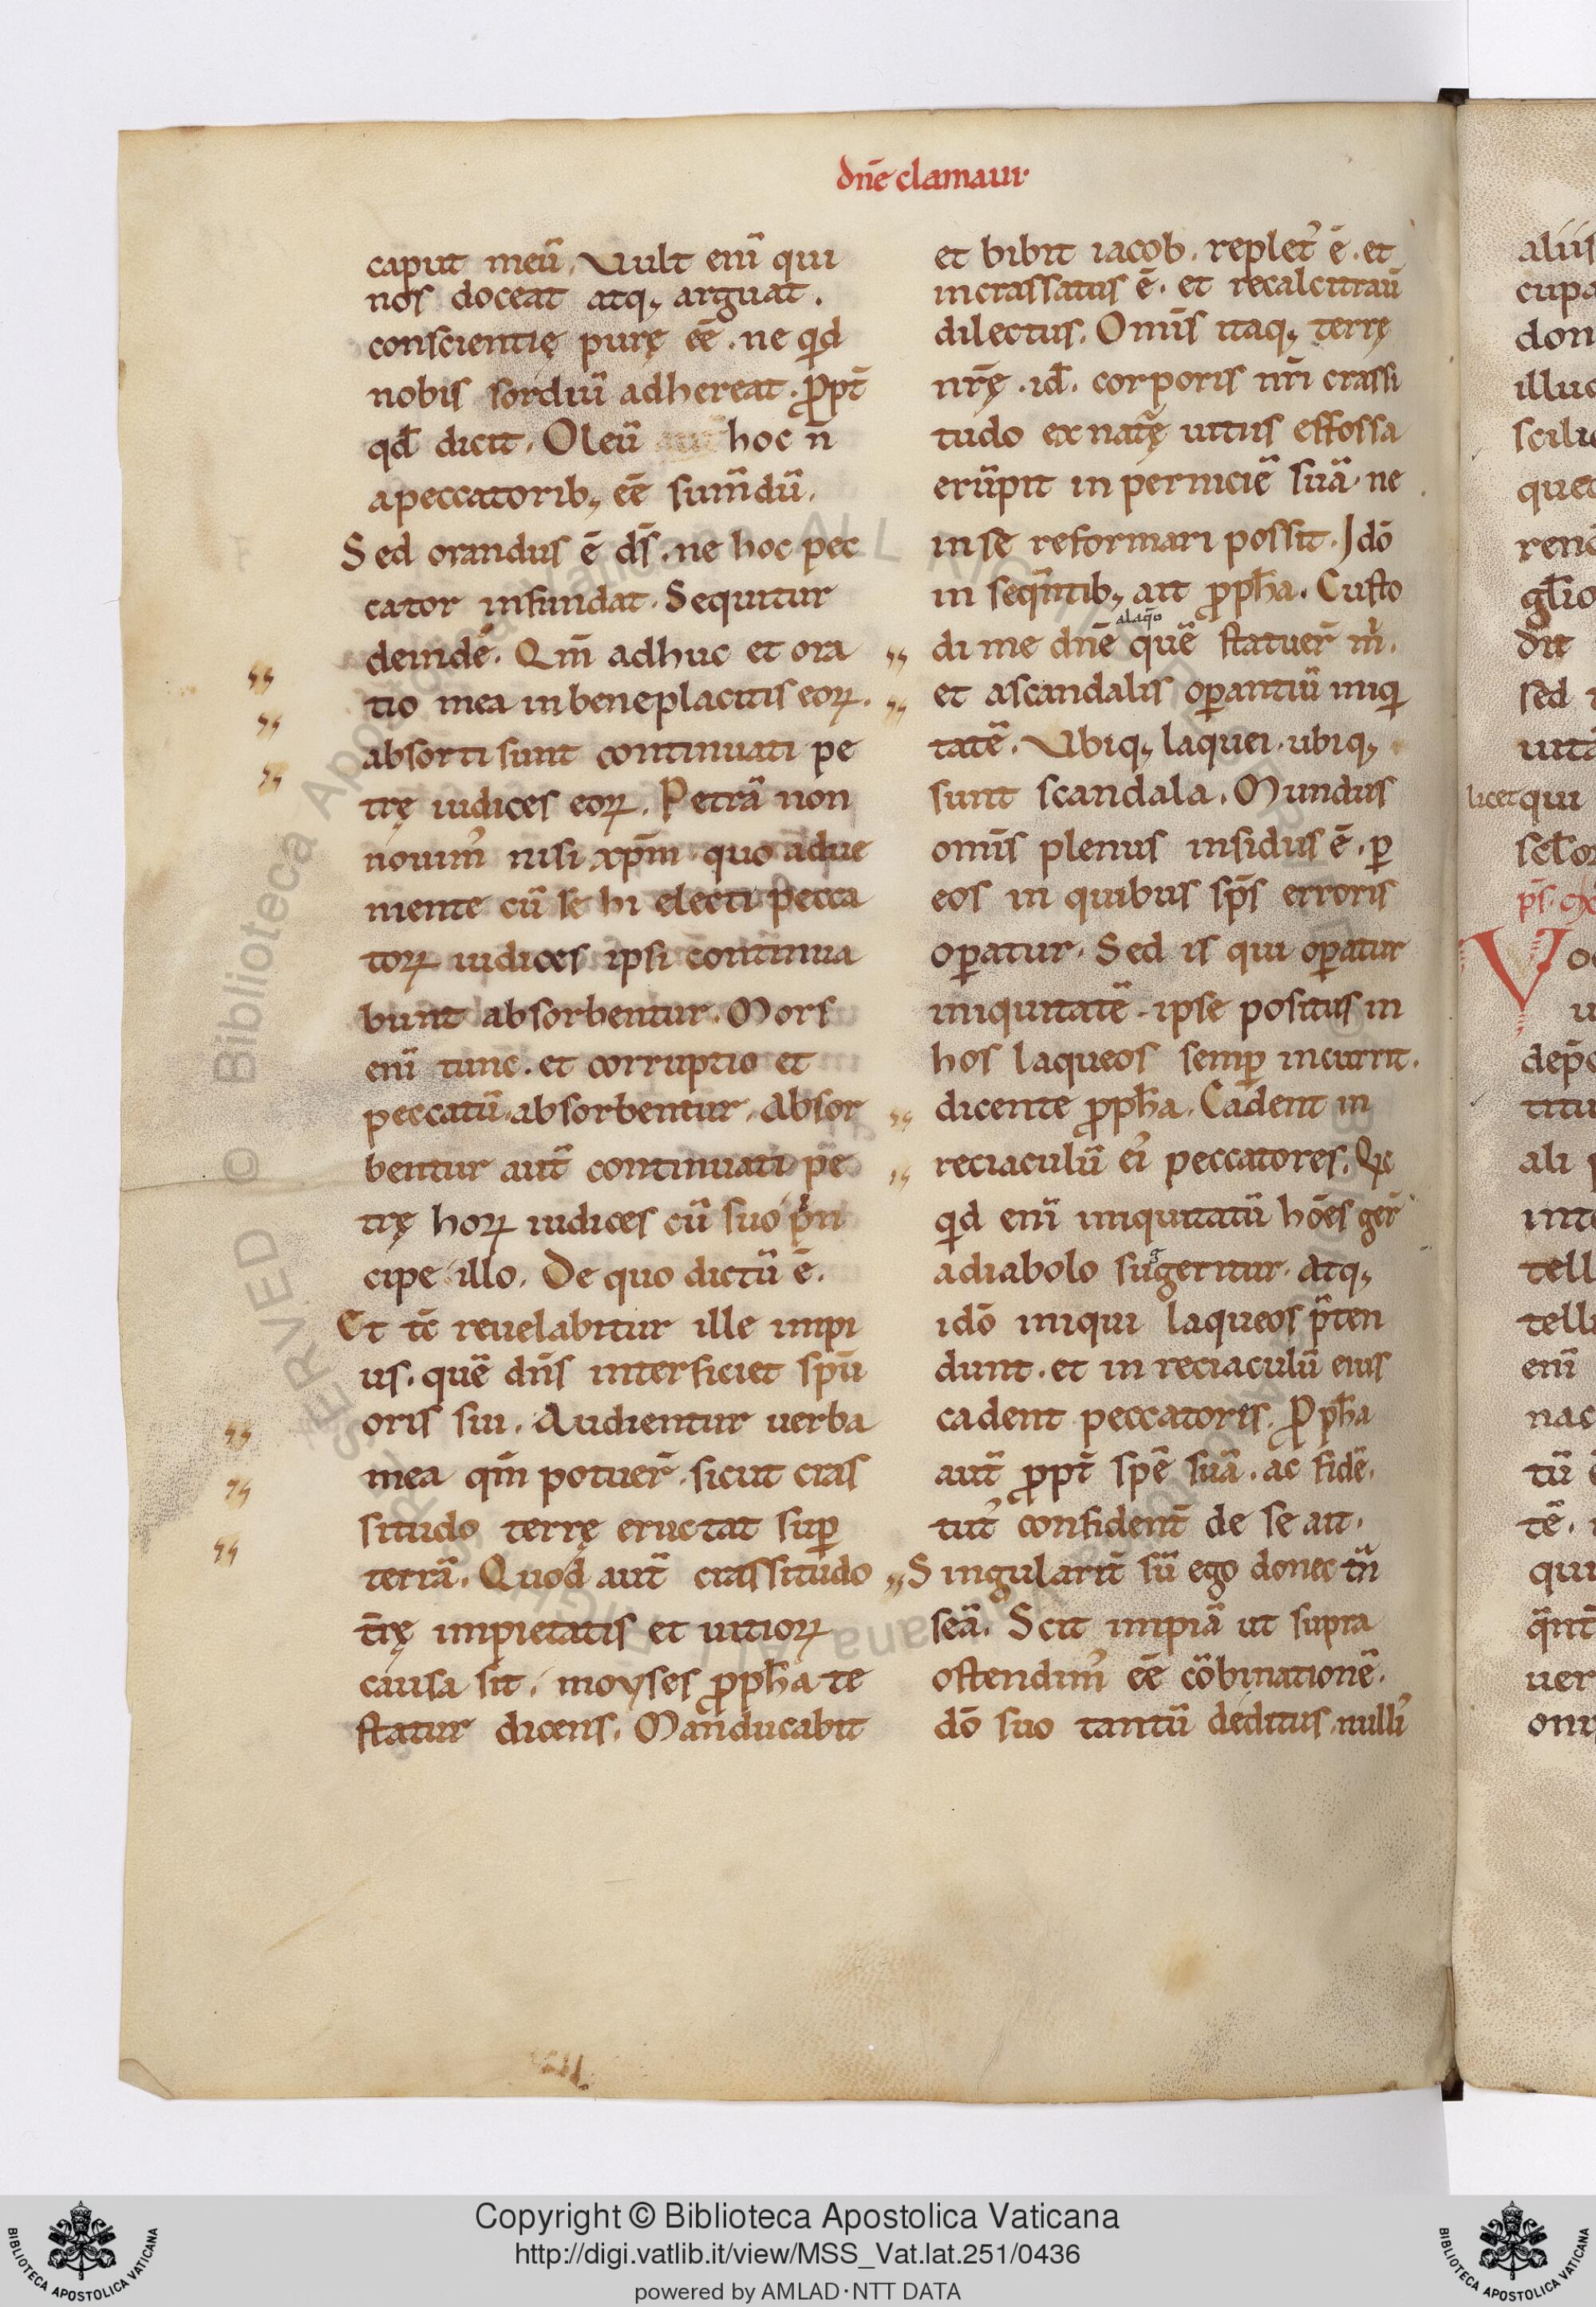 dn̄e clamaui·
caput meū. Vult enī qui
nos doceat atq; arguat.
conscientię purę eē. ne qd
nobis sordiū adhereat. ꝓpt̄
qđ dicit. Oleū hoc n̄
apeccatorib; eē sum̄dū.
Sed orandus ē d̄s. ne hoc pec
cator infundat. Sequitur
deinde. Qm̄ adhuc et ora
tio mea inbeneplacitis eoꝝ.
absorti sunt continuati pe
trę iudices eoꝝ. Petrā non
nouim᾽ nisi xp̄m. quo adue
niente cū se hi electi pecca
toꝝ iudices ipsi continua
bunt absorbentur. Mors
enī tunc. et corruptio et
peccatū absorbentur. Absor
bentur aut̄ continuati pe
trę hoꝝ iudices cū suo pin
cipe illo. De quo dictū ē.
Et tc̄ reuelabitur ille impi
us. quē dn̄s interficiet spū
oris sui. Audientur uerba
mea qm̄ potuer̄. sicut cras
situdo terrę eructat suꝑ
terrā. Quod aut̄ crassitudo
t̄rę impietatis et uitioꝝ
causa sit. moyses ꝓpħa te
statur dicens. Manducabit
et bibit iacob. replet᾽ ē. et
incrassatus ē. et recalcitrau̅
dilectus. Omīs itaq; terrę
nr̄ę. id̄. corporis nr̄i crassi
tudo ex natę uitiis effossa
erūpit in perniciē suā. ne
in se reformari possit. Idō
in seqn̄tib; ait ꝓpħa. Custo
alaq̄o
di me dn̄e quē statuer̄ m̓.
et ascandalis oꝑantiū iniqi
tatē. Vbiq; laquei. ubiq;
sunt scandala. Mundus
omīs plenus insidiis ē. ꝑ
eos in quibus sp̄s erroris
oꝑatur. Sed is qui oꝑatur
iniquitatē. ipse positus in
hos laqueos semꝑ incurrit.
dicente ꝓpħa. Cadent in
reciaculū ei᾽ peccatores. Qc
qd enī iniquitatū hoēs ger̄
adiabolo suggeritur. Atq;
idō iniqui laqueos p̄ten
dunt. et in reciaculū eius
cadent peccatores. ꝓpħa
aut̄ ꝓpt̄ spē suā. ac fidē.
tut᾽ confident̄ de se ait.
Singularit̄ sū ego donec tn̄
seā. Scit impiā ut supra
ostendim᾽ eē cōbinationē.
dō suo tantū deditus nulli᾽
aliis
cupa
don
illuc
scili
quec
reno
gl̄io
dit
sed
uita
licet qui
sc̄lor
ps̄. cx
Vo
u
dep̄c
titu
ali
inte
tell
telli
enī
nac
tū
tē.
qui
q̄nt
uer
oni
Copyright © Biblioteca Apostolica Vaticana
http://digi.vatlib.it/view/MSS_Vat.lat.251/0436
powered by AMLAD·NTT DATA
BIBLIOTECA APOSTOLICA VATICANA
BIBLIOTECA APOSTOLICA VATICANA